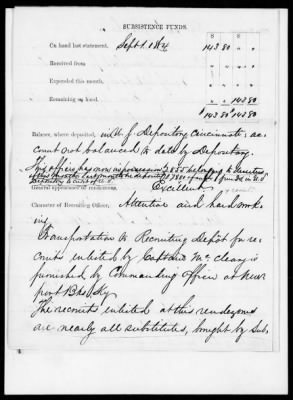 SUBSISTENCE FUNDS.
$ $
On hand last statement, Sept 1. 1874 143 80 " "
Received from " "
Expended this month, " "
Remaining on hand. " " 143 80
$ 143 80 $ 143 80
Balance, where deposited, in U. S. Depository Cincinnati: ac-
count not balanced to date by Depository.
This officer has now in possession
Depository to credit of U. S.
General appearance of rendezvous, Excellent.
Character of Recruiting Officer, Attentive and hard work-
ing
Transportation to Recruiting Depôt for re-
cruits enlisted by Captain Mc.Cleary is
furnished by Commanding Officer at New-
port Bks. Ky
The recruits enlisted at this rendezvous
are nearly all substitutes, bought by sub-